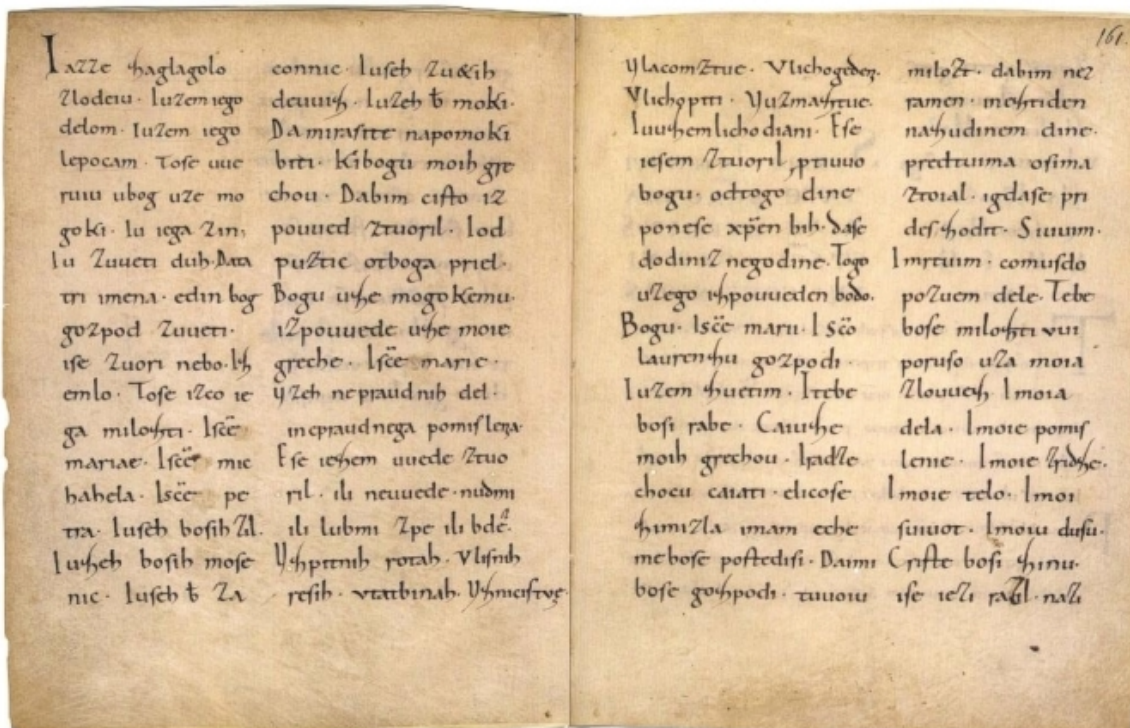 Iazze zaglagolo
zlodeiu. Iuzem iego
delom. Iuzem iego
lepocam. Tose uue
ruiu ubog uze mo
goki. Iu iega zin,
Iu zuueti duh. Data
tri imena. edin bog
gozpod zuueti.
ise zuori nebo. Iz
emlo. Tose izco ie
ga milozti. Iscē
mariae. Iscē mic
hahela. Iscē pe
tra. Iuseh bosih zil.
Iuzeh bosih mose
nic. Iuseh ƀ za
connic. Iuseh zu&ih
deuuiz. Iuzeh ƀ moki.
Da mirasite napomoki
biti. Kibogu moih gre
chou. Dabim cisto iz
pouued ztuoril. Iod
puztic otboga priel.
Bogu uze mogokemu.
izpouuede uze moie
greche. Iscē marie.
yzeh nepraudnih del.
inepraudnega pomisleza.
Ese iezem uuede ztuo
ril. ili neuuede. nudmi
ili lubmi zpe ili bdē.
Yzpitnih rotah. Vlisnih
resih. vtatbinah. Yznicistve.
161.
Ylacomztue. Vlichogeden.
Vlichopiti. Yuzmaztue.
Iuuzemlichodiani. Ese
iesem ztuoril ptiuuo
bogu. odtogo dine
ponese xp̄en bih. dase
dodiniznegodine. Togo
uzego izpouueden bodo.
Bogu. Iscē marii. Iscō
laurenzu gozpodi.
Iuzem zuetim. Itebe
bosi rabe. Caiuze
moih grechou. Iradze
chocu caiati. elicose
zimizla imam eche
me bose postedisi. Daimi
bose gozpodi. tuuoiu
milozt. dabim nez
ramen. ineztiden
nazudinem dine.
predtuima osima
ztoial. igdase pri
des zodit. Siuuim.
Imrtuim. comusdo
pozuem dele. Tebe
bose milozti vui
poruso uza moia
zlouuez. Imoia
dela. Imoie pomis
lenie. Imoie zridze.
Imoie telo. Imoi
siuuot. Imoiu dusu.
Criste bosi zinu.
ise iezi razil. nazi